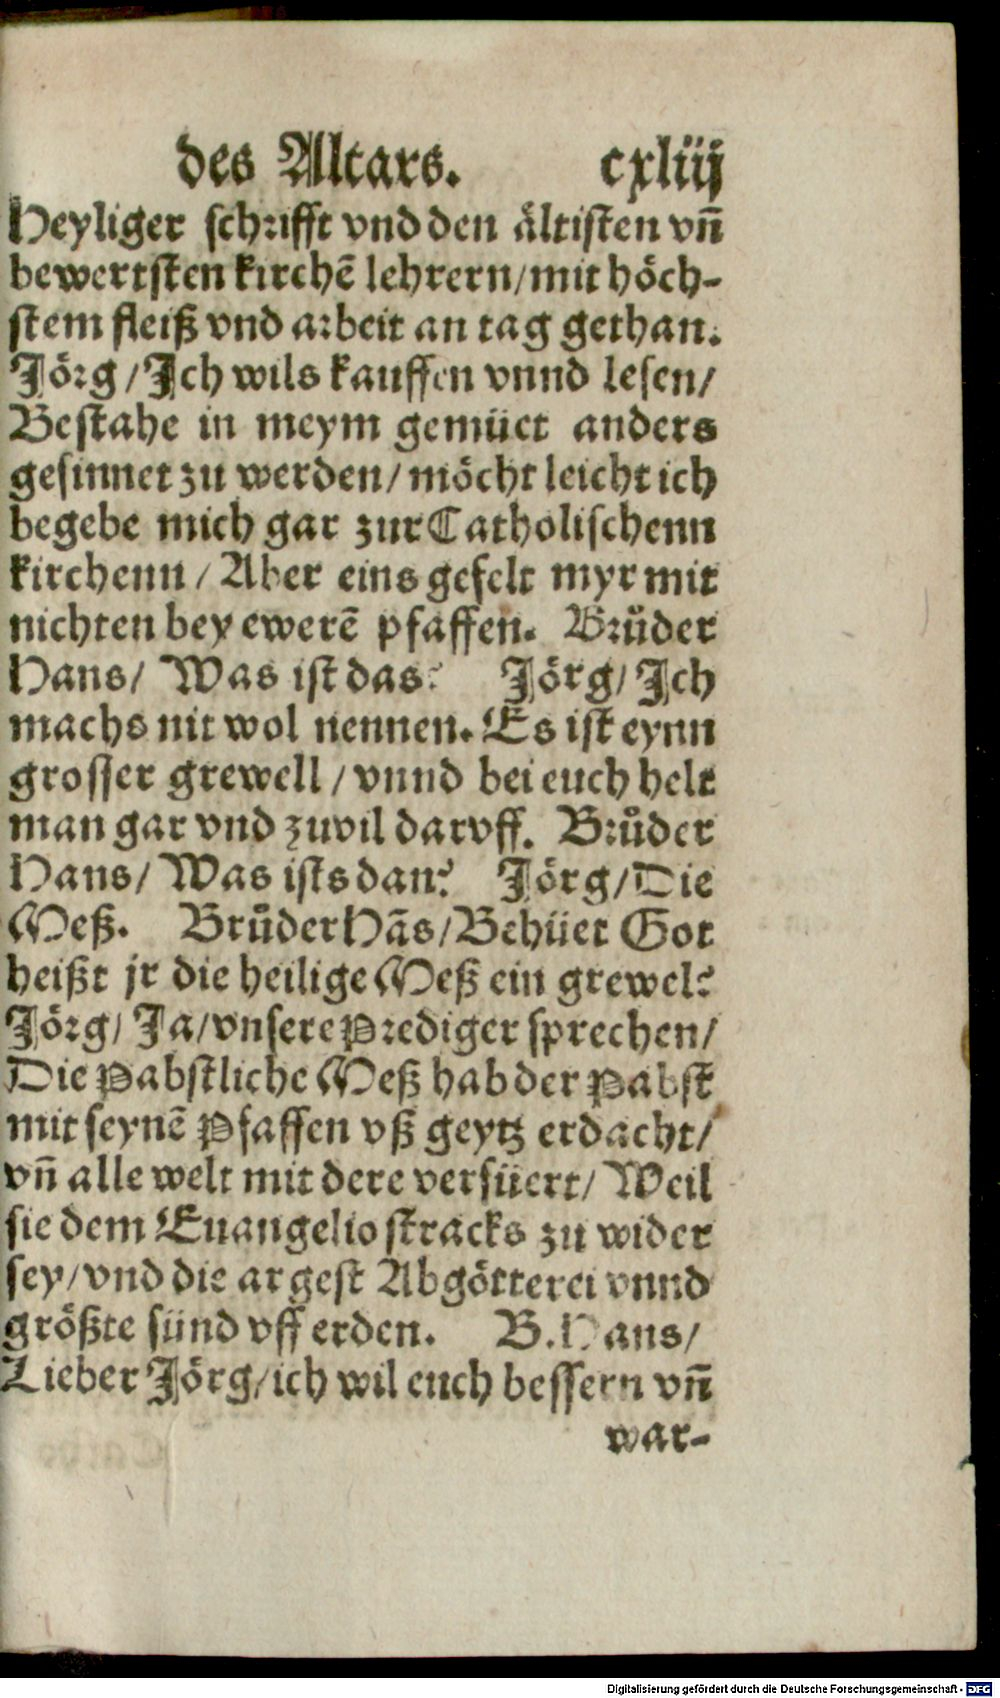 des Altars. cxliij
Heyliger schrifft vnd den ältisten vn̄
bewertsten kirchē lehrern/mit höch-
stem fleiß vnd arbeit an tag gethan.
Jörg/Ich wils kauffen vnnd lesen/
Bestahe in meym gemüet anders
gesinnet zu werden/möcht leicht ich
begebe mich gar zur Catholischenn
kirchenn/Aber eins gefelt myr mit
nichten bey ewerē pfaffen. Brůder
Hans/ Was ist das? Jörg/Ich
machs nit wol nennen. Es ist eynn
grosser grewell/vnnd bei euch helt
man gar vnd zuvil darvff. Brůder
Hans/ Was ists dan? Jörg/Die
Meß. Brůder Hās/Behüet Got
heißt jr die heilige Meß ein grewel?
Jörg/ Ja/vnsere Prediger sprechen/
Die Pabstliche Meß hab der Pabst
mit seynē Pfaffen vß geytz erdacht/
vn̄ alle welt mit dere verfüert/ Weil
sie dem Euangelio stracks zu wider
sey/vnd die argest Abgötterei vnnd
größte sünd vff erden. B. Hans/
Lieber Jörg/ich wil euch bessern vn̄
war-
Digitalisierung gefördert durch die Deutsche Forschungsgemeinschaft - DFG